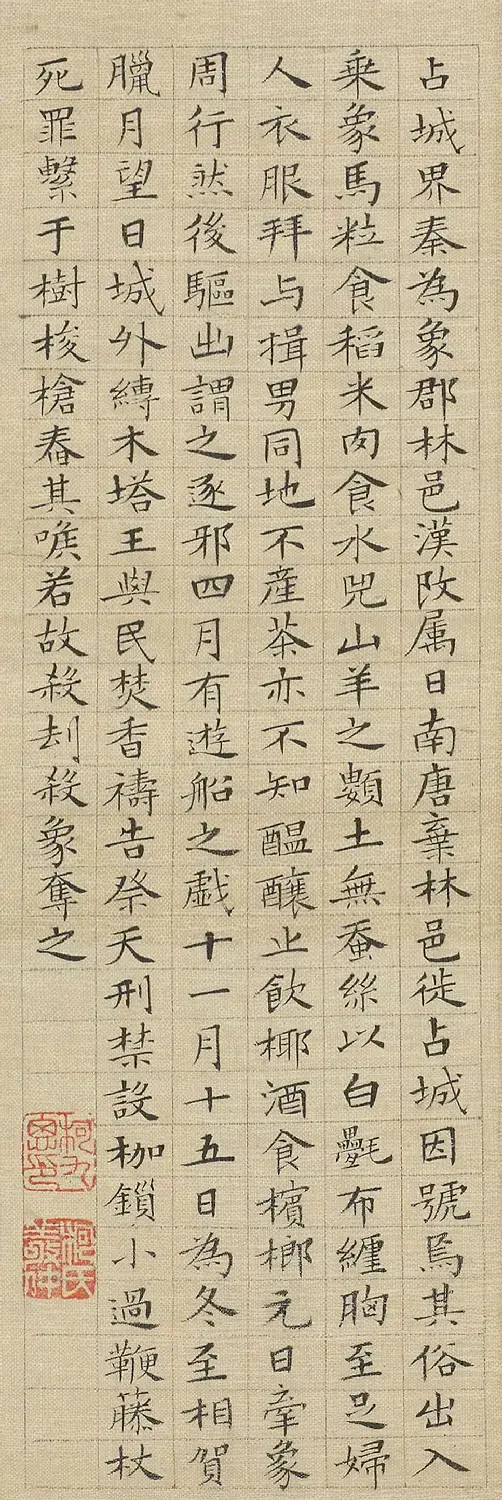 占城界秦為象郡林邑漢改属日南唐棄林邑徙占城因號焉其俗出入
乗象馬粒食稻米肉食水兕山羊之類土無蚕絲以白㲲布纏胸至足婦
人衣服拜与揖男同地不産茶亦不知醖釀止飲椰酒食檳榔元日牽象
周行然後驅出謂之逐邪四月有遊船之戲十一月十五日為冬至相賀
臘月望日城外縛木塔王與民焚香禱告祭天刑禁設枷鎖小過鞭藤杖
死罪繫于樹梭槍舂其喉若故殺刦殺象奪之
柯九思印
柯氏敬仲